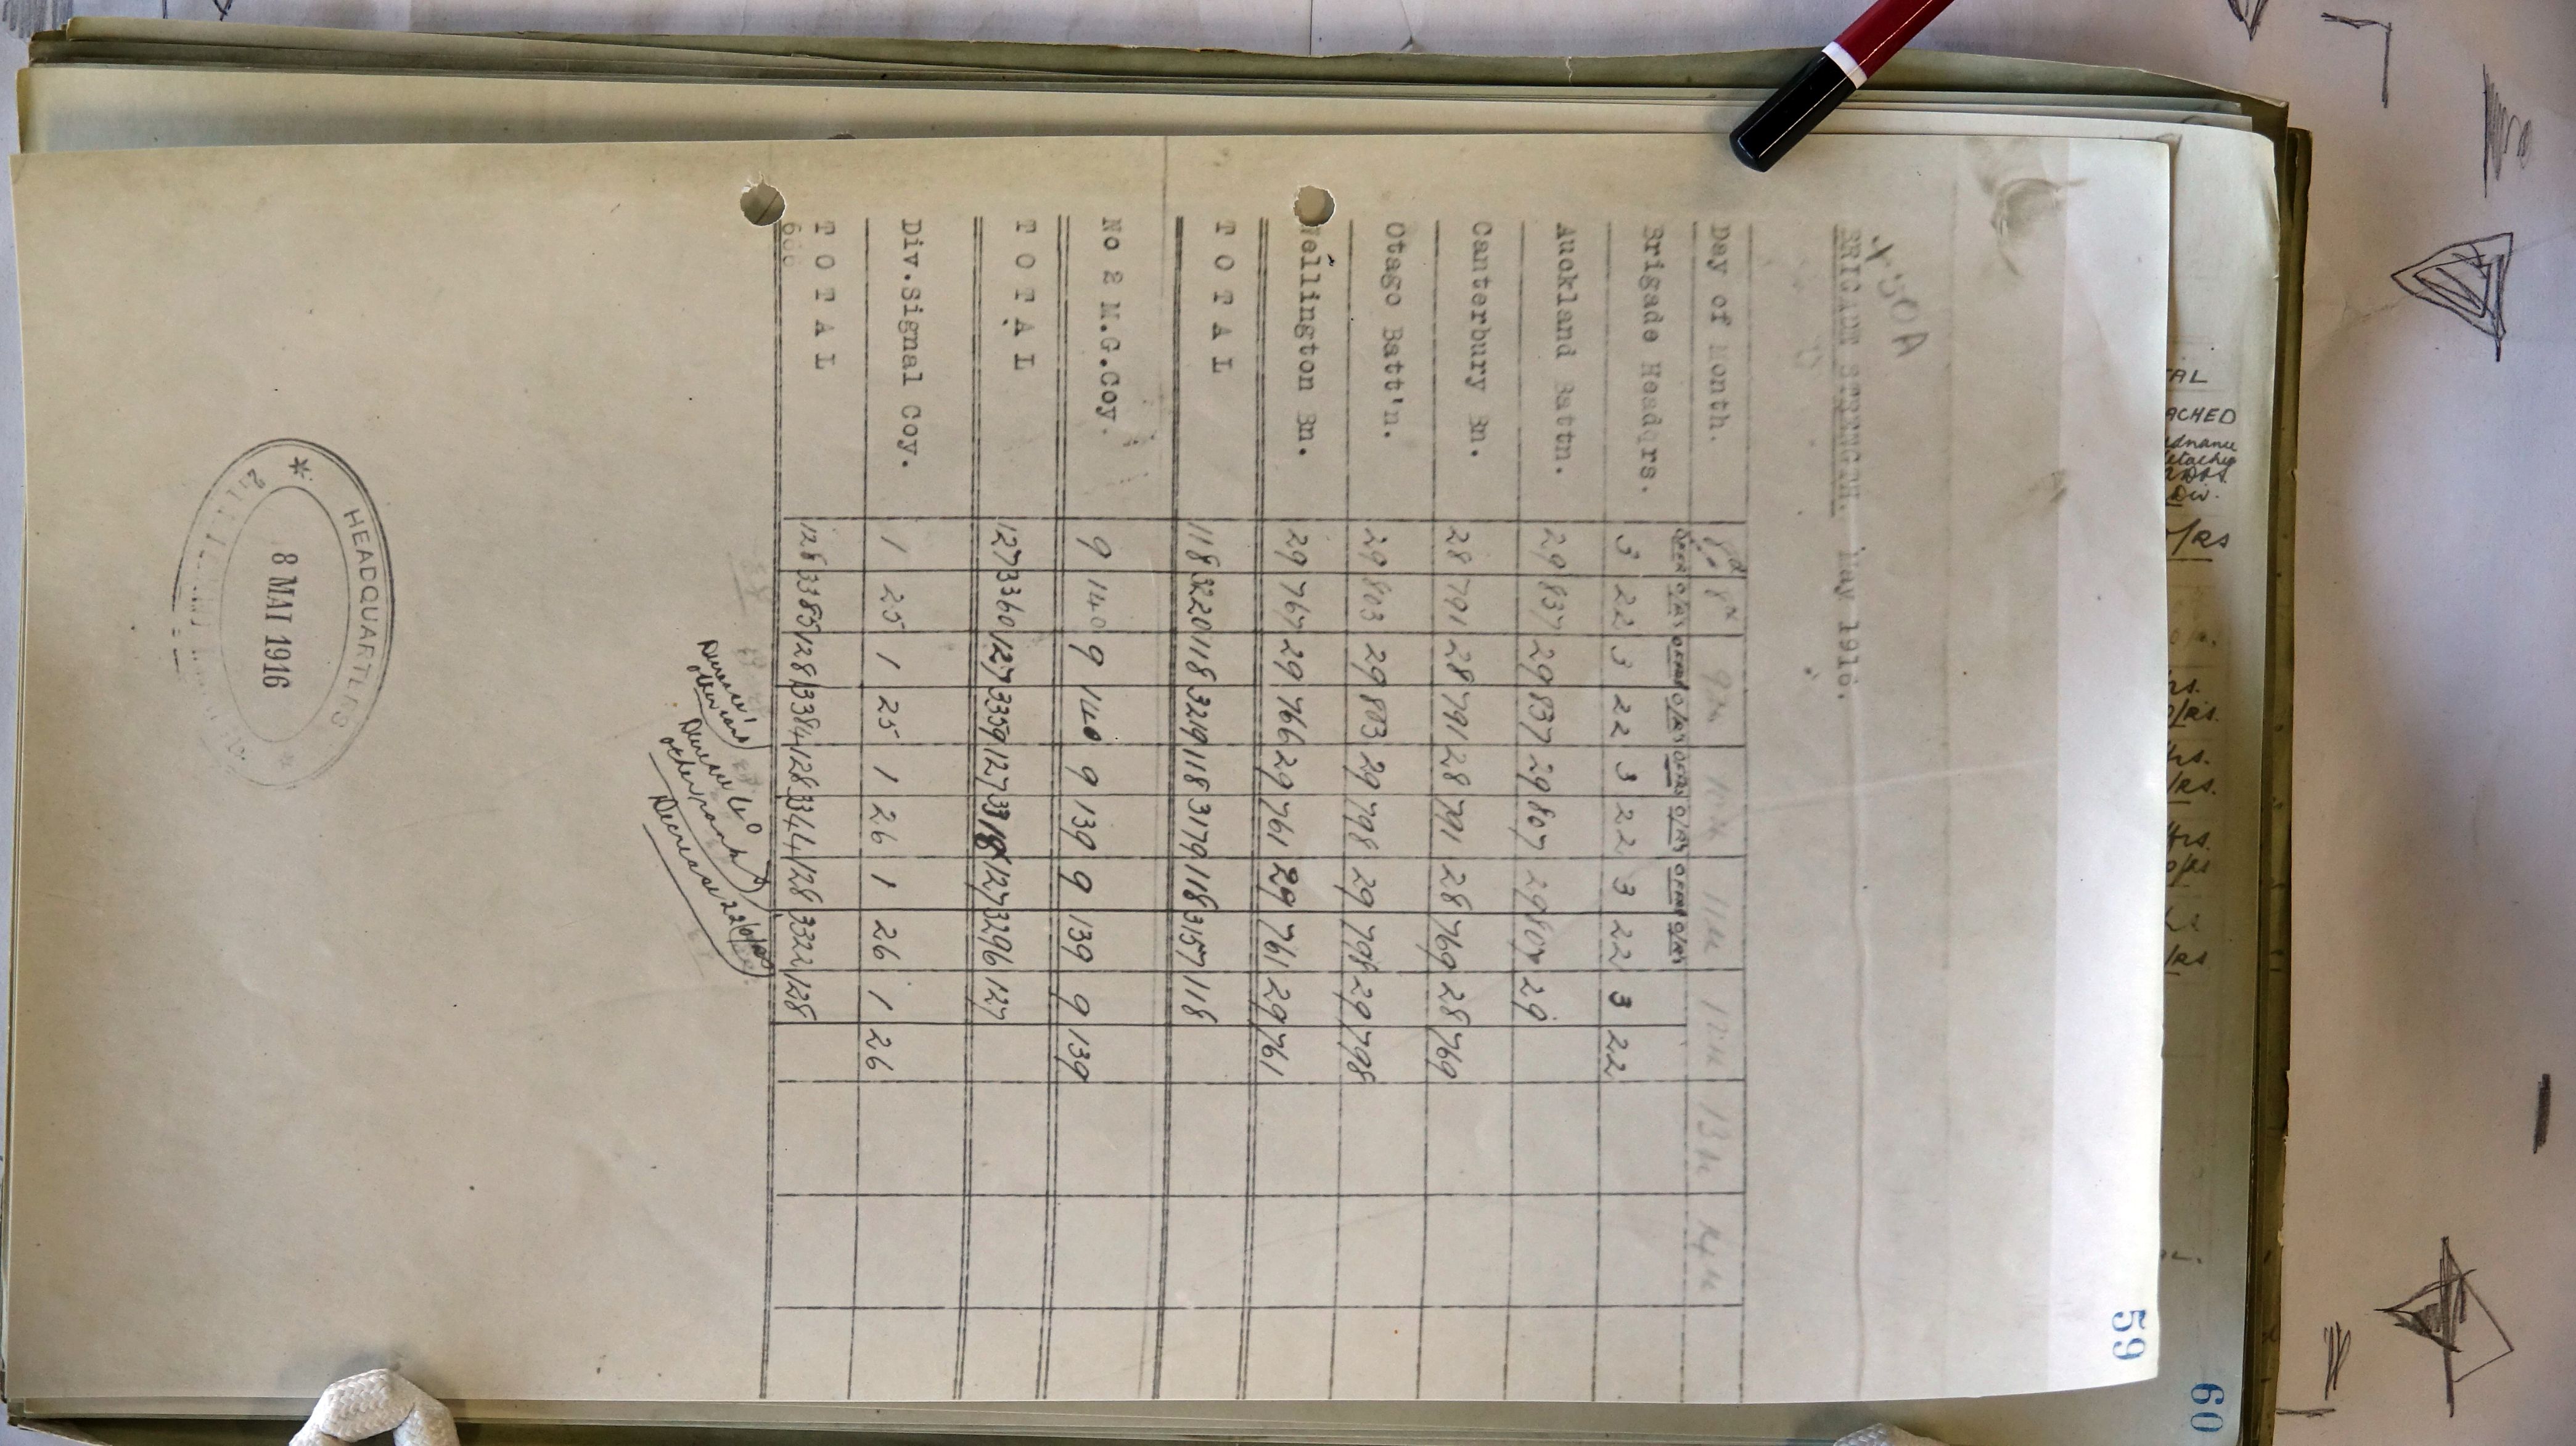 59
BRIGADE STRENGTH. May 1916.
Day of Month. 8th 9th 10th 11th 12th 13th 14th
OFFRS O/RS OFFRS O/RS OFFRS O/RS OFFRS O/RS
Brigade Headqrs. 3 22 3 22 3 22 3 22 3 22
Auckland Battn. 29 837 29 837 29 807 29 807 29
Canterbury Bn. 28 791 28 791 28 791 28 769 28 769
Otago Batt'n. 29 803 29 803 29 798 29 798 29 798
Wellington Bn. 29 767 29 766 29 761 29 761 29 761
T O T A L 118 3220 118 3219 118 3179 118 3157 118
No 2 M.G.Coy. 9 140 9 140 9 139 9 139 9 139
T O T A L 127 3360 127 3359 127 3318 127 3296 127
Div.Signal Coy. 1 25 1 25 1 26 1 26 1 26
T O T A L 128 3385 128 3384 128 3344 128 3322 128
Decrease 1
Decrease 40
other ranks
Decrease 22 O/Rs
HEADQUARTERS
8 MAI 1916
60
TAL
ACHED
Div.
O/RS